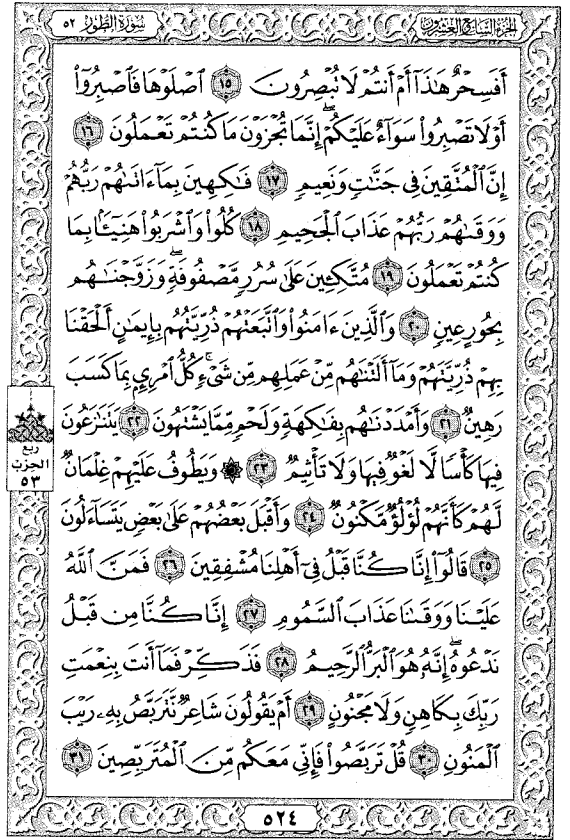 سُورَةُ الطُّورِ ٥٢
الجُزءُ السَّابِعُ وَالعِشرُونَ
أَفَسِحْرٌ هَٰذَآ أَمْ أَنتُمْ لَا تُبْصِرُونَ ١٥ ٱصْلَوْهَا فَٱصْبِرُوٓا۟
أَوْ لَا تَصْبِرُوا۟ سَوَآءٌ عَلَيْكُمْ ۖ إِنَّمَا تُجْزَوْنَ مَا كُنتُمْ تَعْمَلُونَ ١٦
إِنَّ ٱلْمُتَّقِينَ فِى جَنَّٰتٍ وَنَعِيمٍ ١٧ فَٰكِهِينَ بِمَآ ءَاتَىٰهُمْ رَبُّهُمْ
وَوَقَىٰهُمْ رَبُّهُمْ عَذَابَ ٱلْجَحِيمِ ١٨ كُلُوا۟ وَٱشْرَبُوا۟ هَنِيٓـًٔۢا بِمَا
كُنتُمْ تَعْمَلُونَ ١٩ مُتَّكِـِٔينَ عَلَىٰ سُرُرٍ مَّصْفُوفَةٍ ۖ وَزَوَّجْنَٰهُم
بِحُورٍ عِينٍ ٢٠ وَٱلَّذِينَ ءَامَنُوا۟ وَٱتَّبَعَتْهُمْ ذُرِّيَّتُهُم بِإِيمَٰنٍ أَلْحَقْنَا
بِهِمْ ذُرِّيَّتَهُمْ وَمَآ أَلَتْنَٰهُم مِّنْ عَمَلِهِم مِّن شَىْءٍ ۚ كُلُّ ٱمْرِئٍۭ بِمَا كَسَبَ
رَهِينٌ ٢١ وَأَمْدَدْنَٰهُم بِفَٰكِهَةٍ وَلَحْمٍ مِّمَّا يَشْتَهُونَ ٢٢ يَتَنَٰزَعُونَ
فِيهَا كَأْسًا لَّا لَغْوٌ فِيهَا وَلَا تَأْثِيمٌ ٢٣ ۞ وَيَطُوفُ عَلَيْهِمْ غِلْمَانٌ
لَّهُمْ كَأَنَّهُمْ لُؤْلُؤٌ مَّكْنُونٌ ٢٤ وَأَقْبَلَ بَعْضُهُمْ عَلَىٰ بَعْضٍ يَتَسَآءَلُونَ
٢٥ قَالُوٓا۟ إِنَّا كُنَّا قَبْلُ فِىٓ أَهْلِنَا مُشْفِقِينَ ٢٦ فَمَنَّ ٱللَّهُ
عَلَيْنَا وَوَقَىٰنَا عَذَابَ ٱلسَّمُومِ ٢٧ إِنَّا كُنَّا مِن قَبْلُ
نَدْعُوهُ ۖ إِنَّهُۥ هُوَ ٱلْبَرُّ ٱلرَّحِيمُ ٢٨ فَذَكِّرْ فَمَآ أَنتَ بِنِعْمَتِ
رَبِّكَ بِكَاهِنٍ وَلَا مَجْنُونٍ ٢٩ أَمْ يَقُولُونَ شَاعِرٌ نَّتَرَبَّصُ بِهِۦ رَيْبَ
ٱلْمَنُونِ ٣٠ قُلْ تَرَبَّصُوا۟ فَإِنِّى مَعَكُم مِّنَ ٱلْمُتَرَبِّصِينَ ٣١
ربع
الحزب
٥٣
٥٢٤